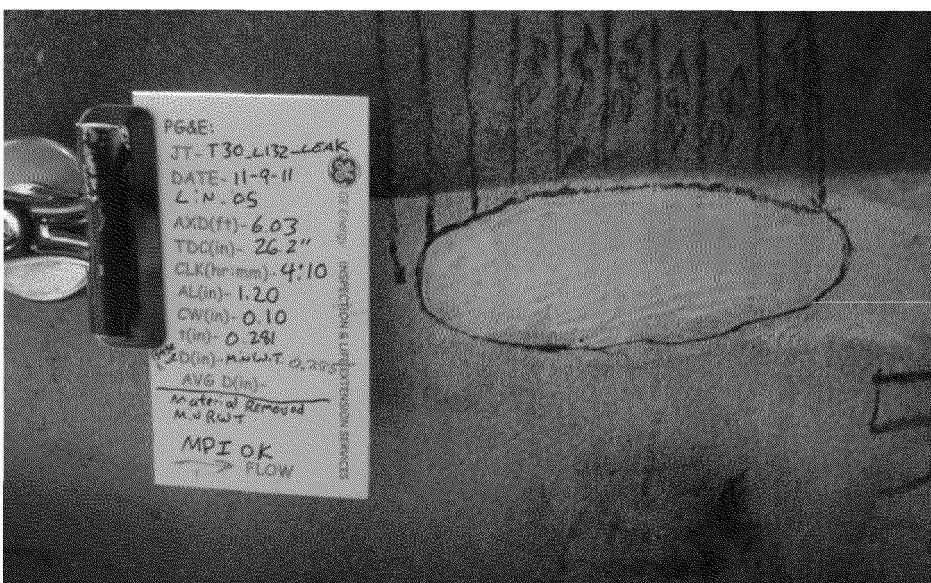 PG&E:
JT- T30_L132_LEAK
DATE- 11-9-11
LIN-05
AXD(ft)- 6.03
TDC(in)- 26.2"
CLK(hr:mm)- 4:10
AL(in)- 1.20
CW(in)- 0.10
t(in)- 0.281
D(in)- M.N.W.T.
AVG D(in)-
Material Removed
MPI OK
→ FLOW
INSPECTION & LIFE EXTENSION SERVICES